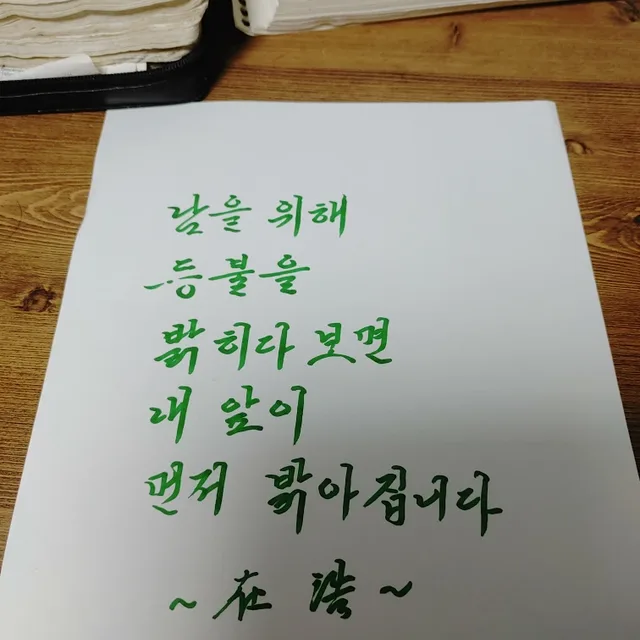 남을 위해
등불을
밝히다 보면
내 앞이
먼저 밝아집니다
~在 浩~